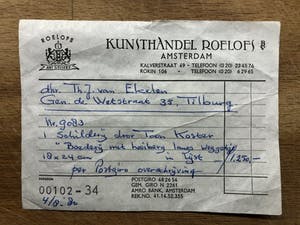 ROELOFS
KUNSTHANDEL ROELOFS BV
AMSTERDAM
KALVERSTRAAT 49 - TELEFOON (020) 22 45 76
ROKIN 106 - TELEFOON (020) 6 29 65
dhr. Th. J. van Eketen
Gen. de Wetstraat 35, Tilburg
Nr. 9083
1 Schilderij door Toon Koster
"Boederij met hooiberg langs
18 x 24 cm in lijst 1.250,-
per Postgiro overschrijving
POSTGIRO 482654
GEM. GIRO N 2261
AMRO BANK, AMSTERDAM
REK.NO. 41.14.52.355
00102-34